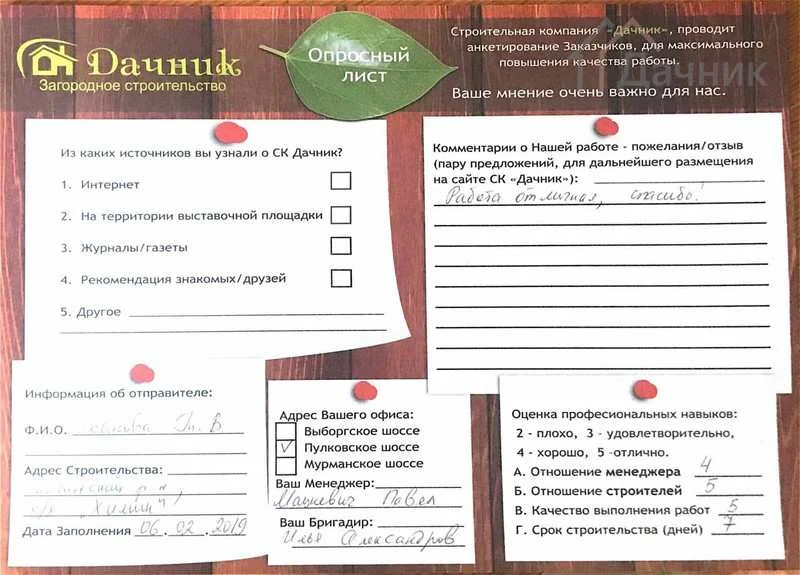 Дачник
Загородное строительство
Опросный
лист
Строительная компания «Дачник», проводит
анкетирование Заказчиков, для максимального
повышения качества работы.
Дачник
Ваше мнение очень важно для нас.
Из каких источников вы узнали о СК Дачник?
1. Интернет
2. На территории выставочной площадки
3. Журналы/газеты
4. Рекомендация знакомых/друзей
5. Другое
Комментарии о Нашей работе - пожелания/отзыв
(пару предложений, для дальнейшего размещения
на сайте СК «Дачник»):
Работа отличная, спасибо!
Информация об отправителе:
Ф.И.О.
Адрес Строительства:
Дата Заполнения 06.02.2019
Адрес Вашего офиса:
Выборгское шоссе
Пулковское шоссе
Мурманское шоссе
Ваш Менеджер:
Мацкевич Павел
Ваш Бригадир:
Илья Александров
Оценка професиональных навыков:
2 - плохо, 3 - удовлетворительно,
4 - хорошо, 5 -отлично.
А. Отношение менеджера 4
Б. Отношение строителей 5
В. Качество выполнения работ 5
Г. Срок строительства (дней) 7